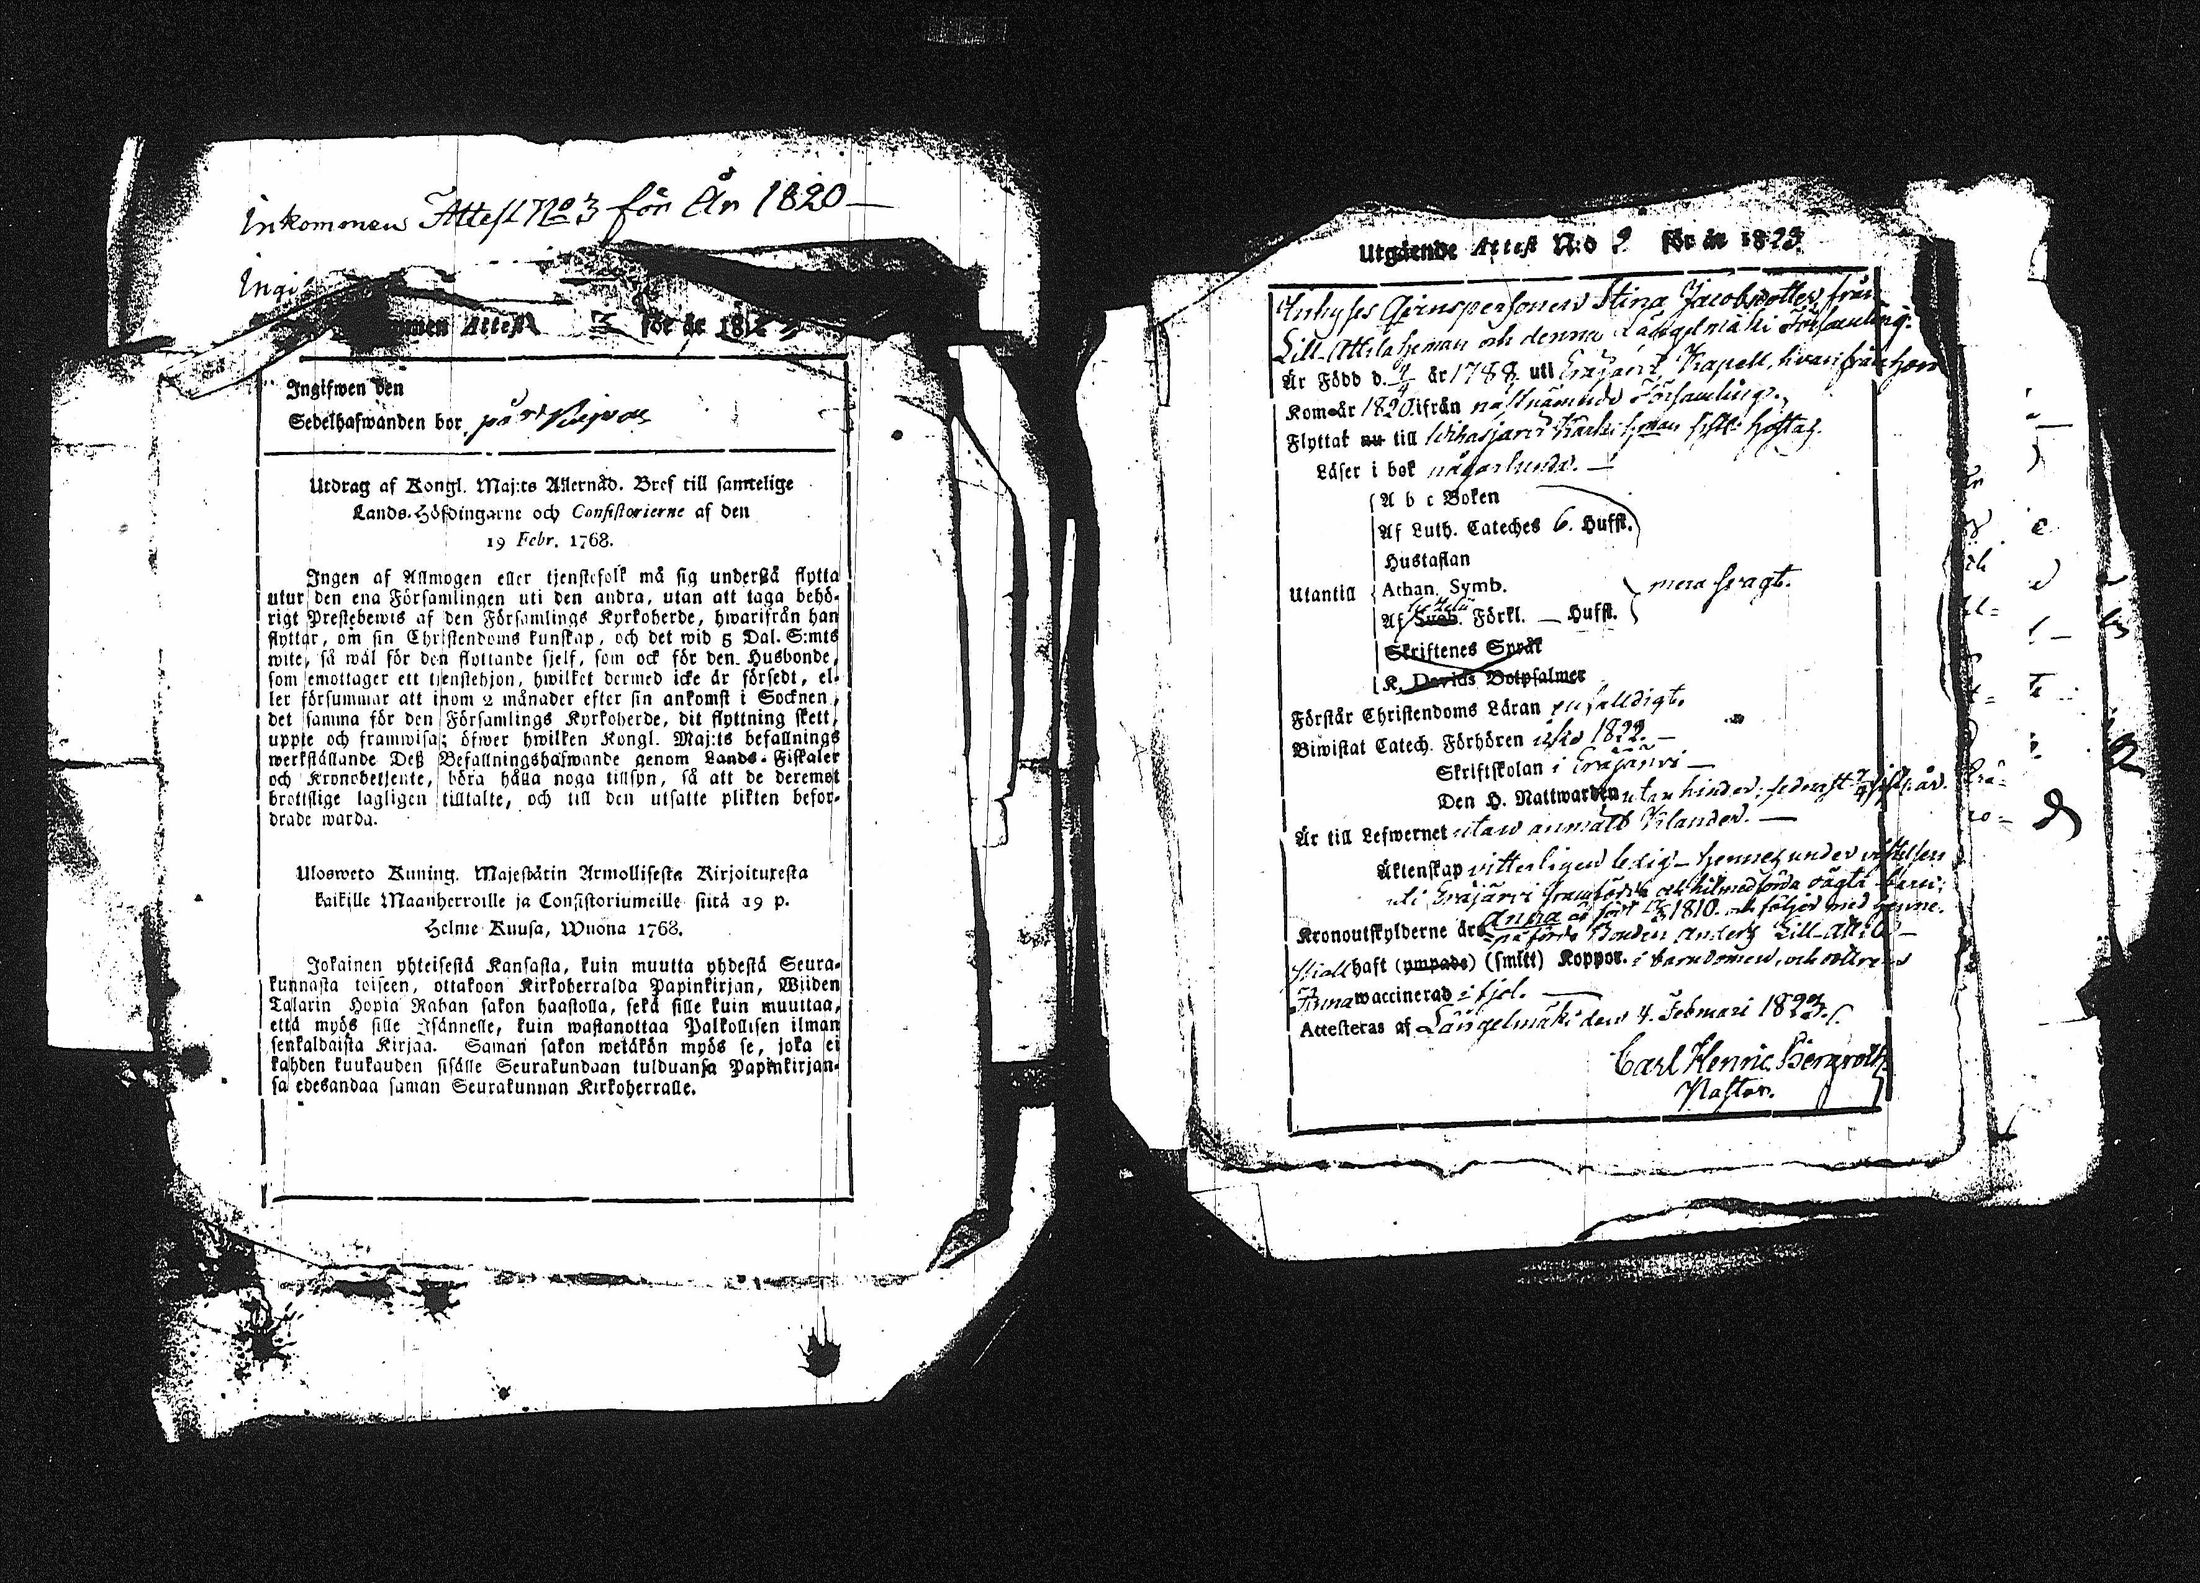 Inkommen Attest No 3 för År 1820 —
Ingi
men Attest 3 för år 18
Ingifwen den
Sedelhafwanden bor på
Utdrag af Kongl. Maj:ts Allernåd. Bref till samtelige
Lands-Höfdingarne och Consistorierne af den
19 Febr. 1768.
Ingen af Allmogen eller tjenstefolk må sig understå flytta
utur den ena Församlingen uti den andra, utan att taga behö-
rigt Prestebewis af den Församlings Kyrkoherde, hwarifrån han
flyttar, om sin Christendoms kunskap, och det wid 5 Dal. S:mts
wite, så wäl för den flyttande sjelf, som ock för den Husbonde,
som emottager ett tjenstehjon, hwilket dermed icke är försedt, el-
ler försummar att inom 2 månader efter sin ankomst i Socknen,
det samma för den Församlings Kyrkoherde, dit flyttning skett,
uppte och framwisa; öfwer hwilken Kongl. Maj:ts befallnings
werkställande Deß Befallningshafwande genom Lands-Fiskaler
och Kronobetjente, böra hålla noga tillsyn, så att de deremot
brottslige lagligen tilltalte, och till den utsatte plikten befor-
drade warda.
Ulosweto Kuning. Majestätin Armollisesta Kirjoituresta
kaikille Maanherroille ja Consistoriumeille siitä 19 p.
Helme Kuusa, Wuona 1768.
Jokainen yhteisestä Kansasta, kuin muutta yhdestä Seura-
kunnasta toiseen, ottakoon Kirkoherralda Papinkirjan, Wiiden
Talarin Hopia Rahan sakon haastolla, sekä sille kuin muuttaa,
että myös sille Isännelle, kuin wastanottaa Palkollisen ilman
senkaldaista Kirjaa. Saman sakon wetäkön myös se, joka ei
kahden kuukauden sisälle Seurakundaan tulduansa Papinkirjan-
sa edesandaa saman Seurakunnan Kirkoherralle.
Utgående Attest N:o 9 för år 1823.
Inhyses Qvinspersonen Stina Jacobsdotter, från
Lill-Attila heman och denna Längelmäki Församling.
Är Född d. 4/4 år 1788. uti Eräjärvi Kapell, hvarifrån hon
Kom år 1820. ifrån nästnämnde Församling.
Flyttat nu till
Läser i bok någorlunda. —
A b c Boken
Af Luth. Cateches 6. Hufst.
Hustaflan
Utantill Athan. Symb. mera svagt.
Af Sveb. Förkl. — Hufst.
Skriftenes Språk
K. Davids Botpsalmer
Förstår Christendoms Läran enfalldigt.
Biwistat Catech. Förhören 1822. —
Skriftskolan i Eräjärvi —
Den H. Nattwarden utan hinder; sednast
Är till Lefwernet utan anmält klander. —
Äktenskap vitterligen ledig — hennes under vistelsen
uti Eräjärvi framfödda och hitmedförda oägta barn:
Anna är född 1810. och följer med henne.
Kronoutskylderne är påförde Bonden Anders Lill-Attila —
Stina haft (ympade) (smitt) Koppor. i barndomen, och dottren
Anna waccinerad i fjol. —
Attesteras af Längelmäki den 4. Februari 1823.
Carl Henric Bergroth
Pastor.